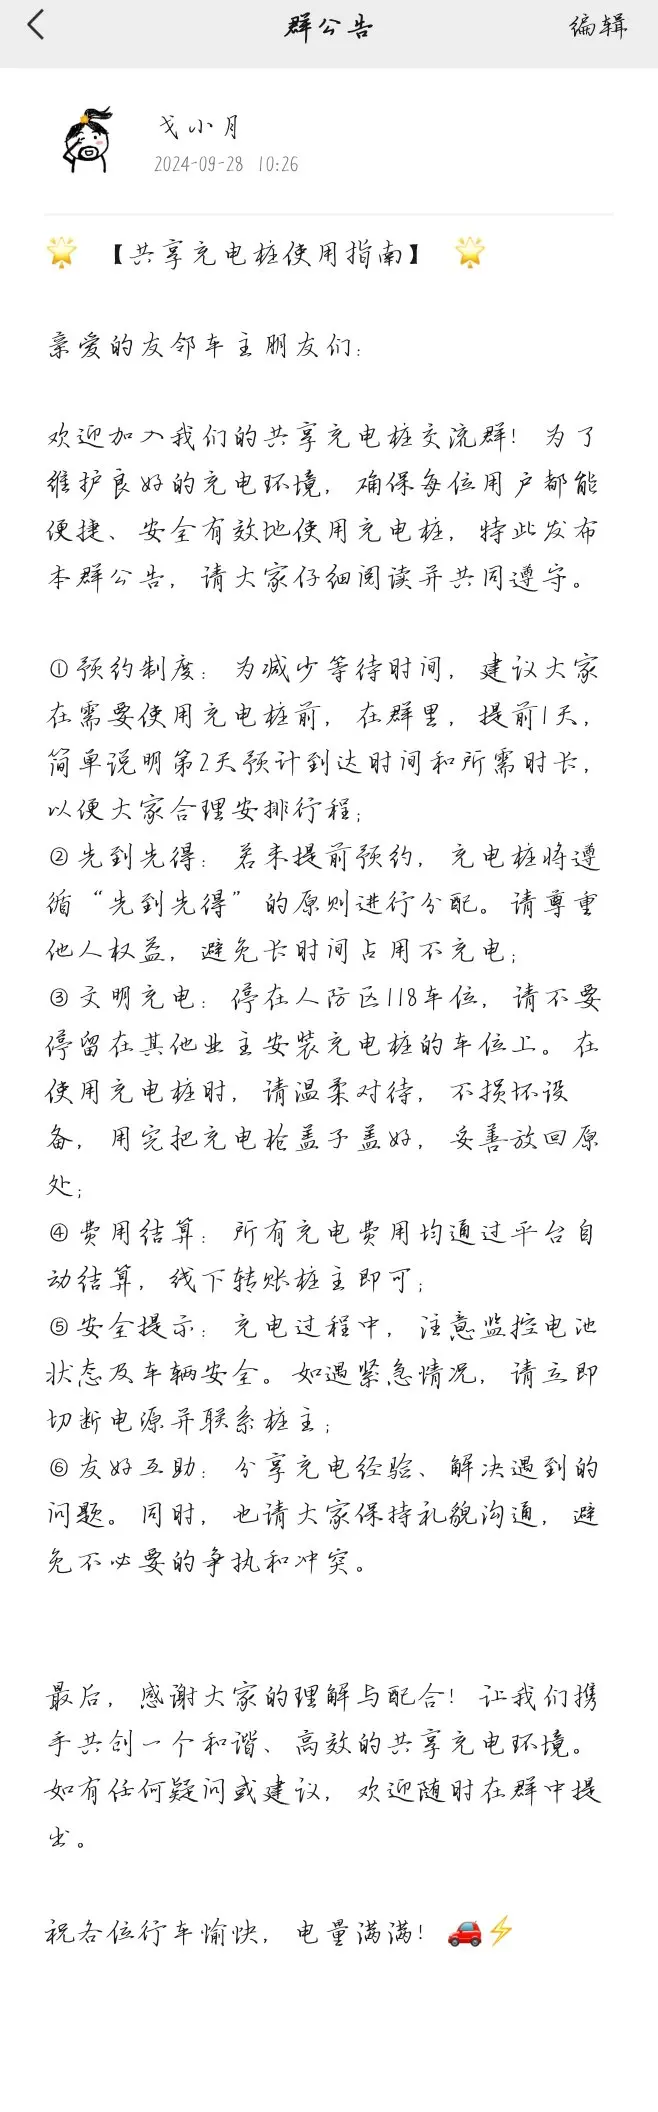 群公告
编辑
戈小月
2024-09-28 10:26
🌟 【共享充电桩使用指南】 🌟
亲爱的友邻车主朋友们：
欢迎加入我们的共享充电桩交流群！为了
维护良好的充电环境，确保每位用户都能
便捷、安全有效地使用充电桩，特此发布
本群公告，请大家仔细阅读并共同遵守。
①预约制度：为减少等待时间，建议大家
在需要使用充电桩前，在群里，提前1天，
简单说明第2天预计到达时间和所需时长，
以便大家合理安排行程；
②先到先得：若未提前预约，充电桩将遵
循“先到先得”的原则进行分配。请尊重
他人权益，避免长时间占用不充电；
③文明充电：停在人防区118车位，请不要
停留在其他业主安装充电桩的车位上。在
使用充电桩时，请温柔对待，不损坏设
备，用完把充电枪盖子盖好，妥善放回原
处；
④费用结算：所有充电费用均通过平台自
动结算，线下转账桩主即可；
⑤安全提示：充电过程中，注意监控电池
状态及车辆安全。如遇紧急情况，请立即
切断电源并联系桩主；
⑥友好互助：分享充电经验、解决遇到的
问题。同时，也请大家保持礼貌沟通，避
免不必要的争执和冲突。
最后，感谢大家的理解与配合！让我们携
手共创一个和谐、高效的共享充电环境。
如有任何疑问或建议，欢迎随时在群中提
出。
祝各位行车愉快，电量满满！🚗⚡